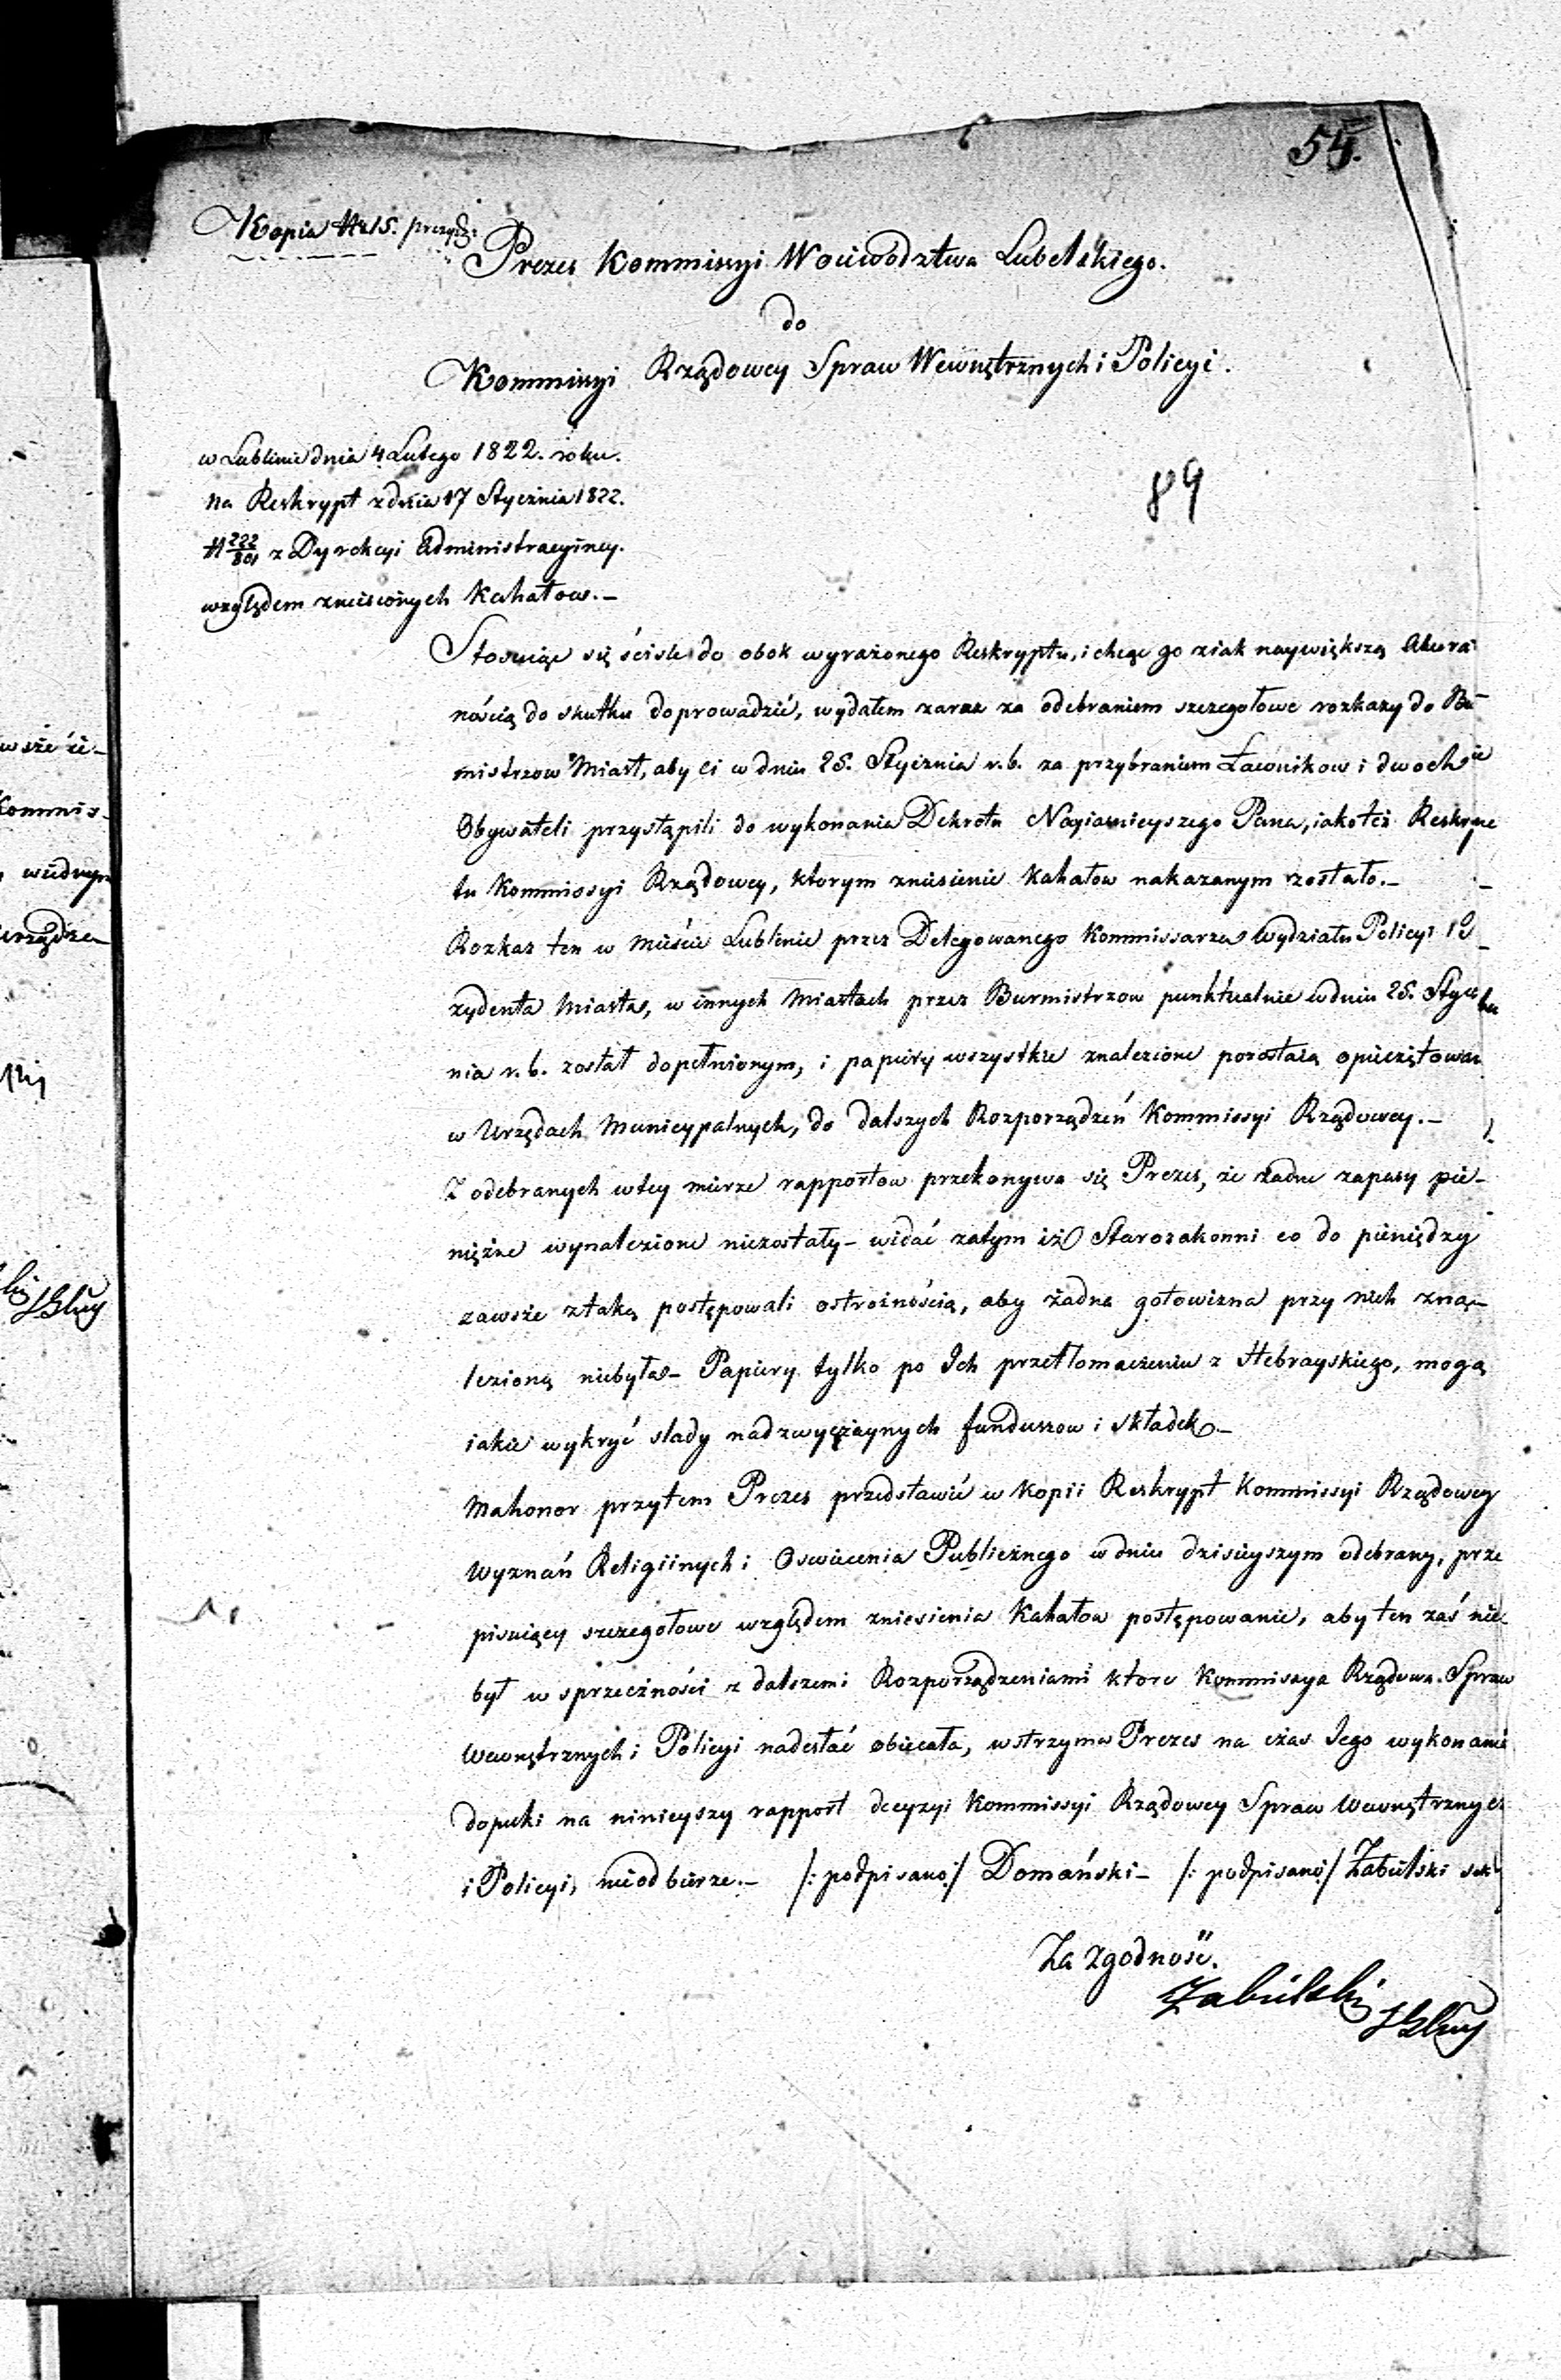 55.
Kopia Nr 15. prezyd:
Prezes Kommissyi Woiewodztwa Lubelskiego.
do
Kommissyi Rządowey Spraw Wewnętrznych i Policyi.
w Lublinie dnia 4 Lutego 1822. roku.
Na Reskrypt z dnia 17 Stycznia 1822.
N 222/801 z Dyrekcyi Administracyiney.
względem zniesionych Kahałow.—
89
Stosuiąc się ściśle do obok wyrażonego Reskryptu, i chcąc go ziak naywiększą Akura
nością do skutku doprowadzić, wydałem zaraz za odebraniem szczegołowe rozkazy do Bu
mistrzow Miast, aby ci w dniu 25. Stycznia r. b. za przybraniem Ławnikow i dwoch
Obywateli przystąpili do wykonania Dekretu Nayiasnieyszego Pana, iakoteż Reskryp
tu Kommissyi Rządowey, ktorym zniesienie Kahałow nakazanym zostało.—
Rozkaz ten w Mieście Lublinie przez Delegowanego Kommissarza Wydziału Policyi i P
zydenta Miasta, w innych Miastach przez Burmistrzow punktualnie w dniu 25. Stycz
nia r. b. został dopełnionym, i papiery wszystkie znalezione pozostaią opieczętowan
w Urzędach Municypalnych, do dalszych Rozporządzeń Kommissyi Rządowey.—
Z odebranych w tey mierze rapportow przekonywa się Prezes, że żadne zapasy pie-
niężne wynalezione niezostały – widać zatym iż Starozakonni co do pieniędzy
zawsze z taką postępowali ostrożnością, aby żadna gotowizna przy nich zna-
lezioną niebyła – Papiery tylko po Ich przetłomaczeniu z Hebrayskiego, mogą
iakie wykryć slady nadzwyczaynych funduszow i składek.—
Mahonor przytem Prezes przedstawić w kopii Reskrypt Kommissyi Rządowey
Wyznań Religiinych i Oswiecenia Publicznego w dniu dzisieyszym odebrany, prze
pisuiący szczegołowe względem zniesienia Kahałow postępowanie, aby ten zaś nie
był w sprzeczności z dalszemi Rozporządzeniami ktore Kommissya Rządowa Spraw
Wewnętrznych i Policyi nadesłać obiecała, wstrzyma Prezes na czas Jego wykonanie
dopuki na ninieyszy rapport decyzyi Kommissyi Rządowey Spraw Wewnętrznych
i Policyi, nieodbierze.— /: podpisano :/ Domański – /: podpisano :/ Zabielski sek
Za zgodność.
Zabielski